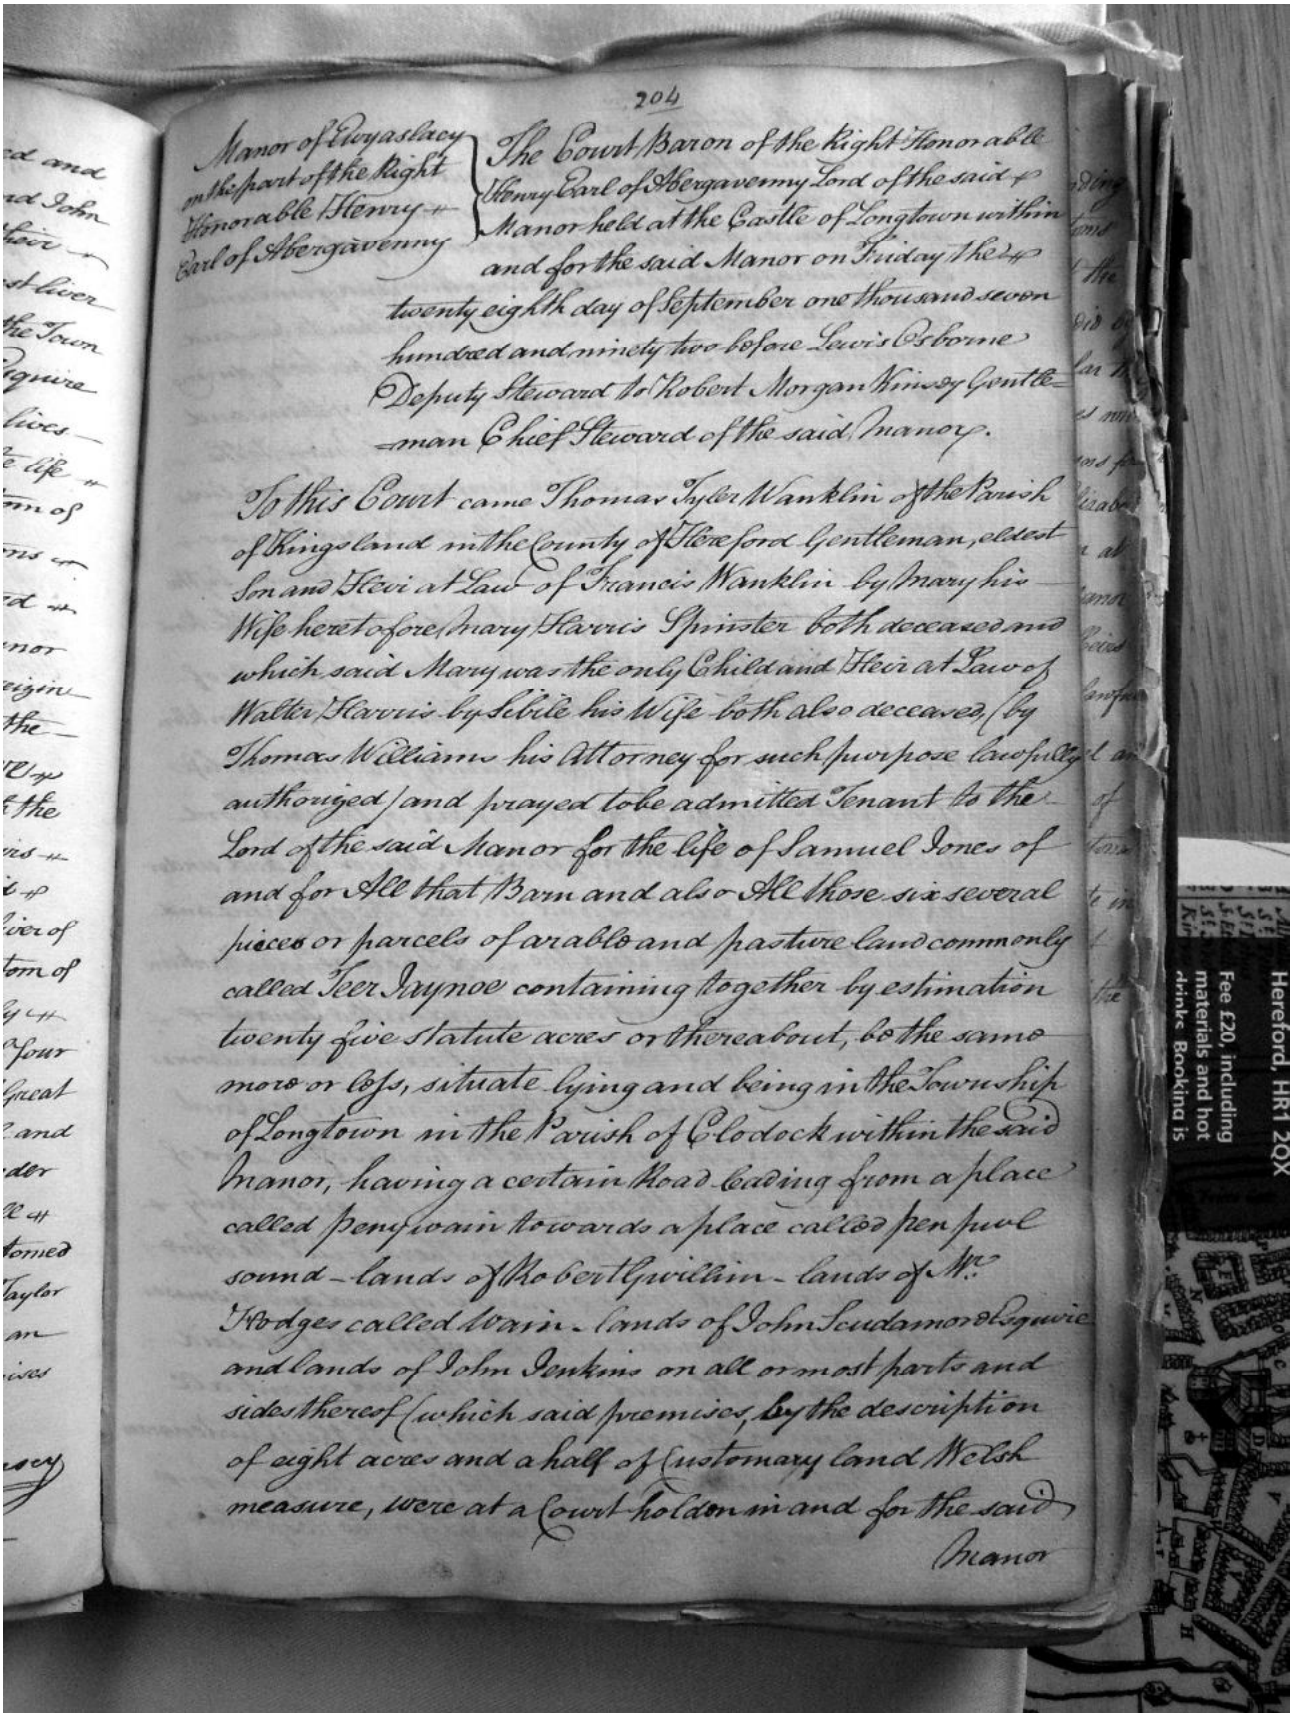 204
Manor of Ewyaslacy
on the part of the Right
Honorable Henry
Earl of Abergavenny
The Court Baron of the Right Honorable
Henry Earl of Abergavenny Lord of the said
Manor held at the Castle of Longtown within
and for the said Manor on Friday the
twenty eighth day of September one thousand seven
hundred and ninety two before Lewis Osborne
Deputy Steward to Robert Morgan Kinsey Gentle=
=man Chief Steward of the said Manor.
To this Court came Thomas Tyler Wanklin of the Parish
of Kingsland in the County of Hereford Gentleman, eldest
Son and Heir at Law of Francis Wanklin by Mary his
Wife heretofore Mary Harris Spinster both deceased and
which said Mary was the only Child and Heir at Law of
Walter Harris by Sibile his Wife both also deceased, (by
Thomas Williams his Attorney for such purpose lawfully
authorized) and prayed to be admitted Tenant to the
Lord of the said Manor for the life of Samuel Jones of
and for All that Barn and also All those six several
pieces or parcels of arable and pasture land commonly
called Teer Jaynoe containing together by estimation
twenty five statute acres or thereabout, be the same
more or less, situate lying and being in the Township
of Longtown in the Parish of Clodock within the said
Manor, having a certain Road leading from a place
called penywain towards a place called pen pwl
sound - lands of Robert Gwillim - lands of Mr.
Hodges called Wain - lands of John Scudamore Esquire
and lands of John Jenkins on all or most parts and
sides thereof (which said premises, by the description
of eight acres and a half of Customary land Welsh
measure, were at a Court holden in and for the said
Manor
ed and
nd John
their
st liver
the Town
Esquire
lives
life
om of
nor
the
the
iver of
tom of
four
Great
and
der
tomed
Taylor
an
ises
Hereford, HR1 2QX
Fee £20, including
materials and hot
drinks. Booking is